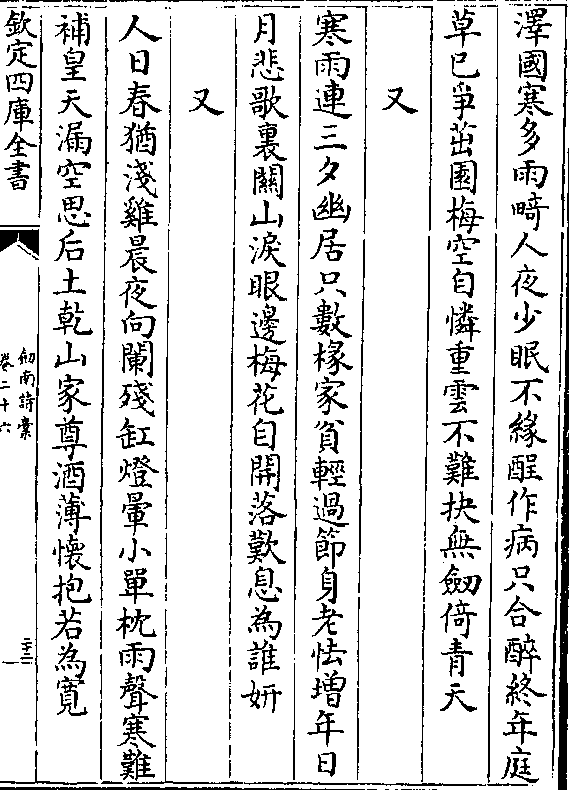 澤國寒多雨畸人夜少眠不緣酲作病只合醉終年庭
草已爭茁園梅空自憐重雲不難抉無劒倚青天
又
寒雨連三夕幽居只數椽家貧輕過節身老怯増年日
月悲歌裏關山淚眼邊梅花自開落歎息為誰妍
又
人日春猶淺雞晨夜向闌殘缸燈暈小單枕雨聲寒難
補皇天漏空思后土乾山家尊酒薄懷抱若為寛
欽定四庫全書
劒南詩稾
卷二十六